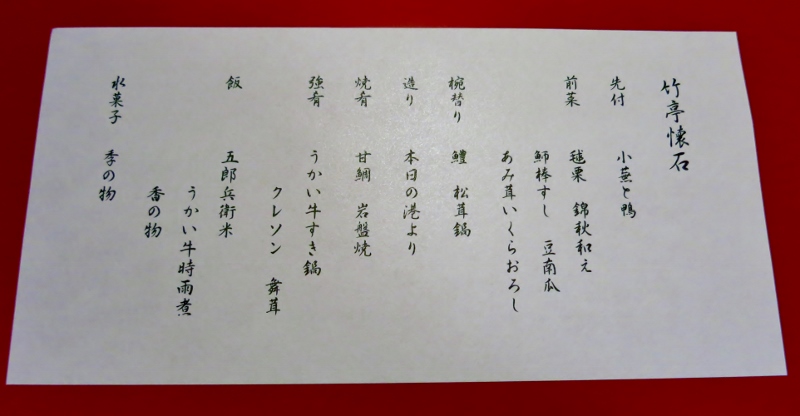 竹亭懐石
先付　小蕪と鴨
前菜　毬栗　錦秋和え
鰤棒すし　豆南瓜
あみ茸いくらおろし
椀替り　鱧　松茸鍋
造り　本日の港より
焼肴　甘鯛　岩盤焼
強肴　うかい牛すき鍋
クレソン　舞茸
飯　五郎兵衛米
うかい牛時雨煮
香の物
水菓子　季の物